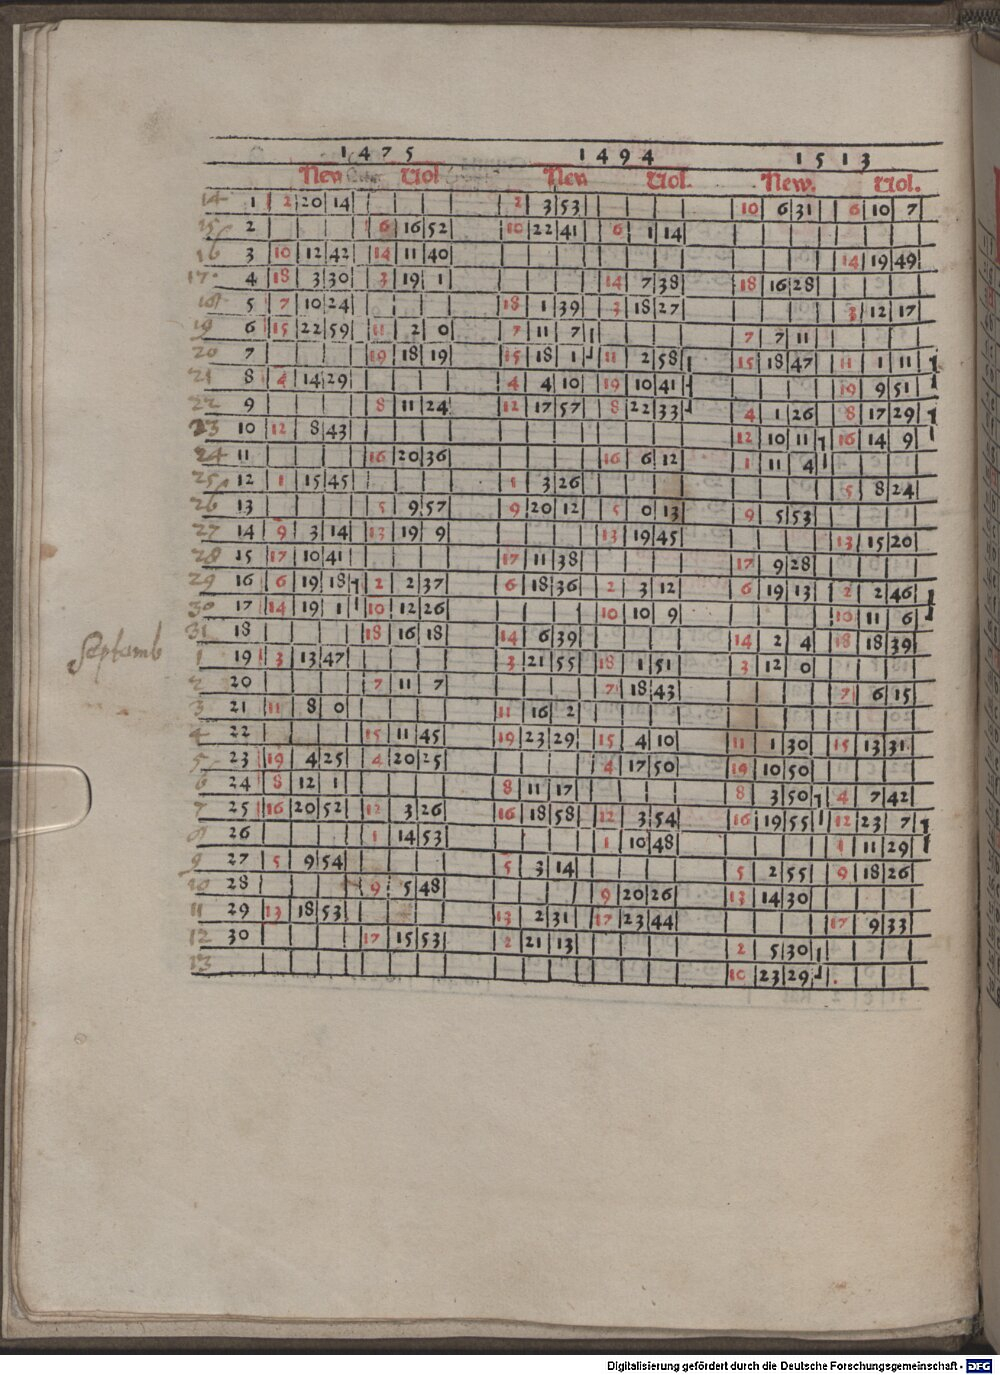 1475 1494 1513
New Vol New Vol. New. Vol.
14 1 2 20 14 2 3 53 10 6 31 6 10 7
15 2 6 16 52 10 22 41 6 1 14
16 3 10 12 42 14 11 40 14 19 49
17 4 18 3 30 3 19 1 14 7 38 18 16 28
18 5 7 10 24 18 1 39 3 18 27 3 12 17
19 6 15 22 59 11 2 0 7 11 7 7 7 11
20 7 19 18 19 15 18 1 11 2 58 15 18 47 11 1 11
21 8 4 14 29 4 4 10 19 10 41 19 9 51
22 9 8 11 24 12 17 57 8 22 33 4 1 26 8 17 29
23 10 12 8 43 12 10 11 16 14 9
24 11 16 20 36 16 6 12 1 11 4
25 12 1 15 45 1 3 26 5 8 24
26 13 5 9 57 9 20 12 5 0 13 9 5 53
27 14 9 3 14 13 19 9 13 19 45 13 15 20
28 15 17 10 41 17 11 38 17 9 28
29 16 6 19 18 2 2 37 6 18 36 2 3 12 6 19 13 2 2 46
30 17 14 19 1 10 12 26 10 10 9 10 11 6
31 18 18 16 18 14 6 39 14 2 4 18 18 39
Septamb
1 19 3 13 47 3 21 55 18 1 51 3 12 0
2 20 7 11 7 7 18 43 7 6 15
3 21 11 8 0 11 16 2
4 22 15 11 45 19 23 29 15 4 10 11 1 30 15 13 31
5 23 19 4 25 4 20 25 4 17 50 19 10 50
6 24 8 12 1 8 11 17 8 3 50 4 7 42
7 25 16 20 52 12 3 26 16 18 58 12 3 54 16 19 55 12 23 7
8 26 1 14 53 1 10 48 1 11 29
9 27 5 9 54 5 3 14 5 2 55 9 18 26
10 28 9 5 48 9 20 26 13 14 30
11 29 13 18 53 13 2 31 17 23 44 17 9 33
12 30 17 15 53 2 21 13 2 5 30
13 10 23 29
Digitalisierung gefördert durch die Deutsche Forschungsgemeinschaft - DFG